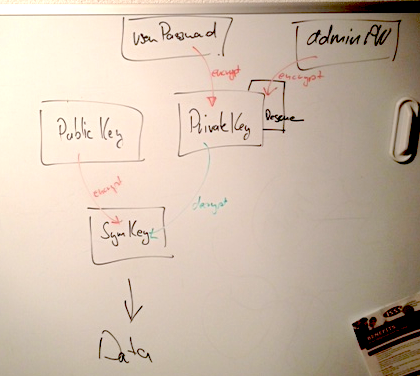 user Password
adminPW
encrypt
encrypt
Public Key
PrivateKey
Rescue
encrypt
decrypt
SymKey
Data